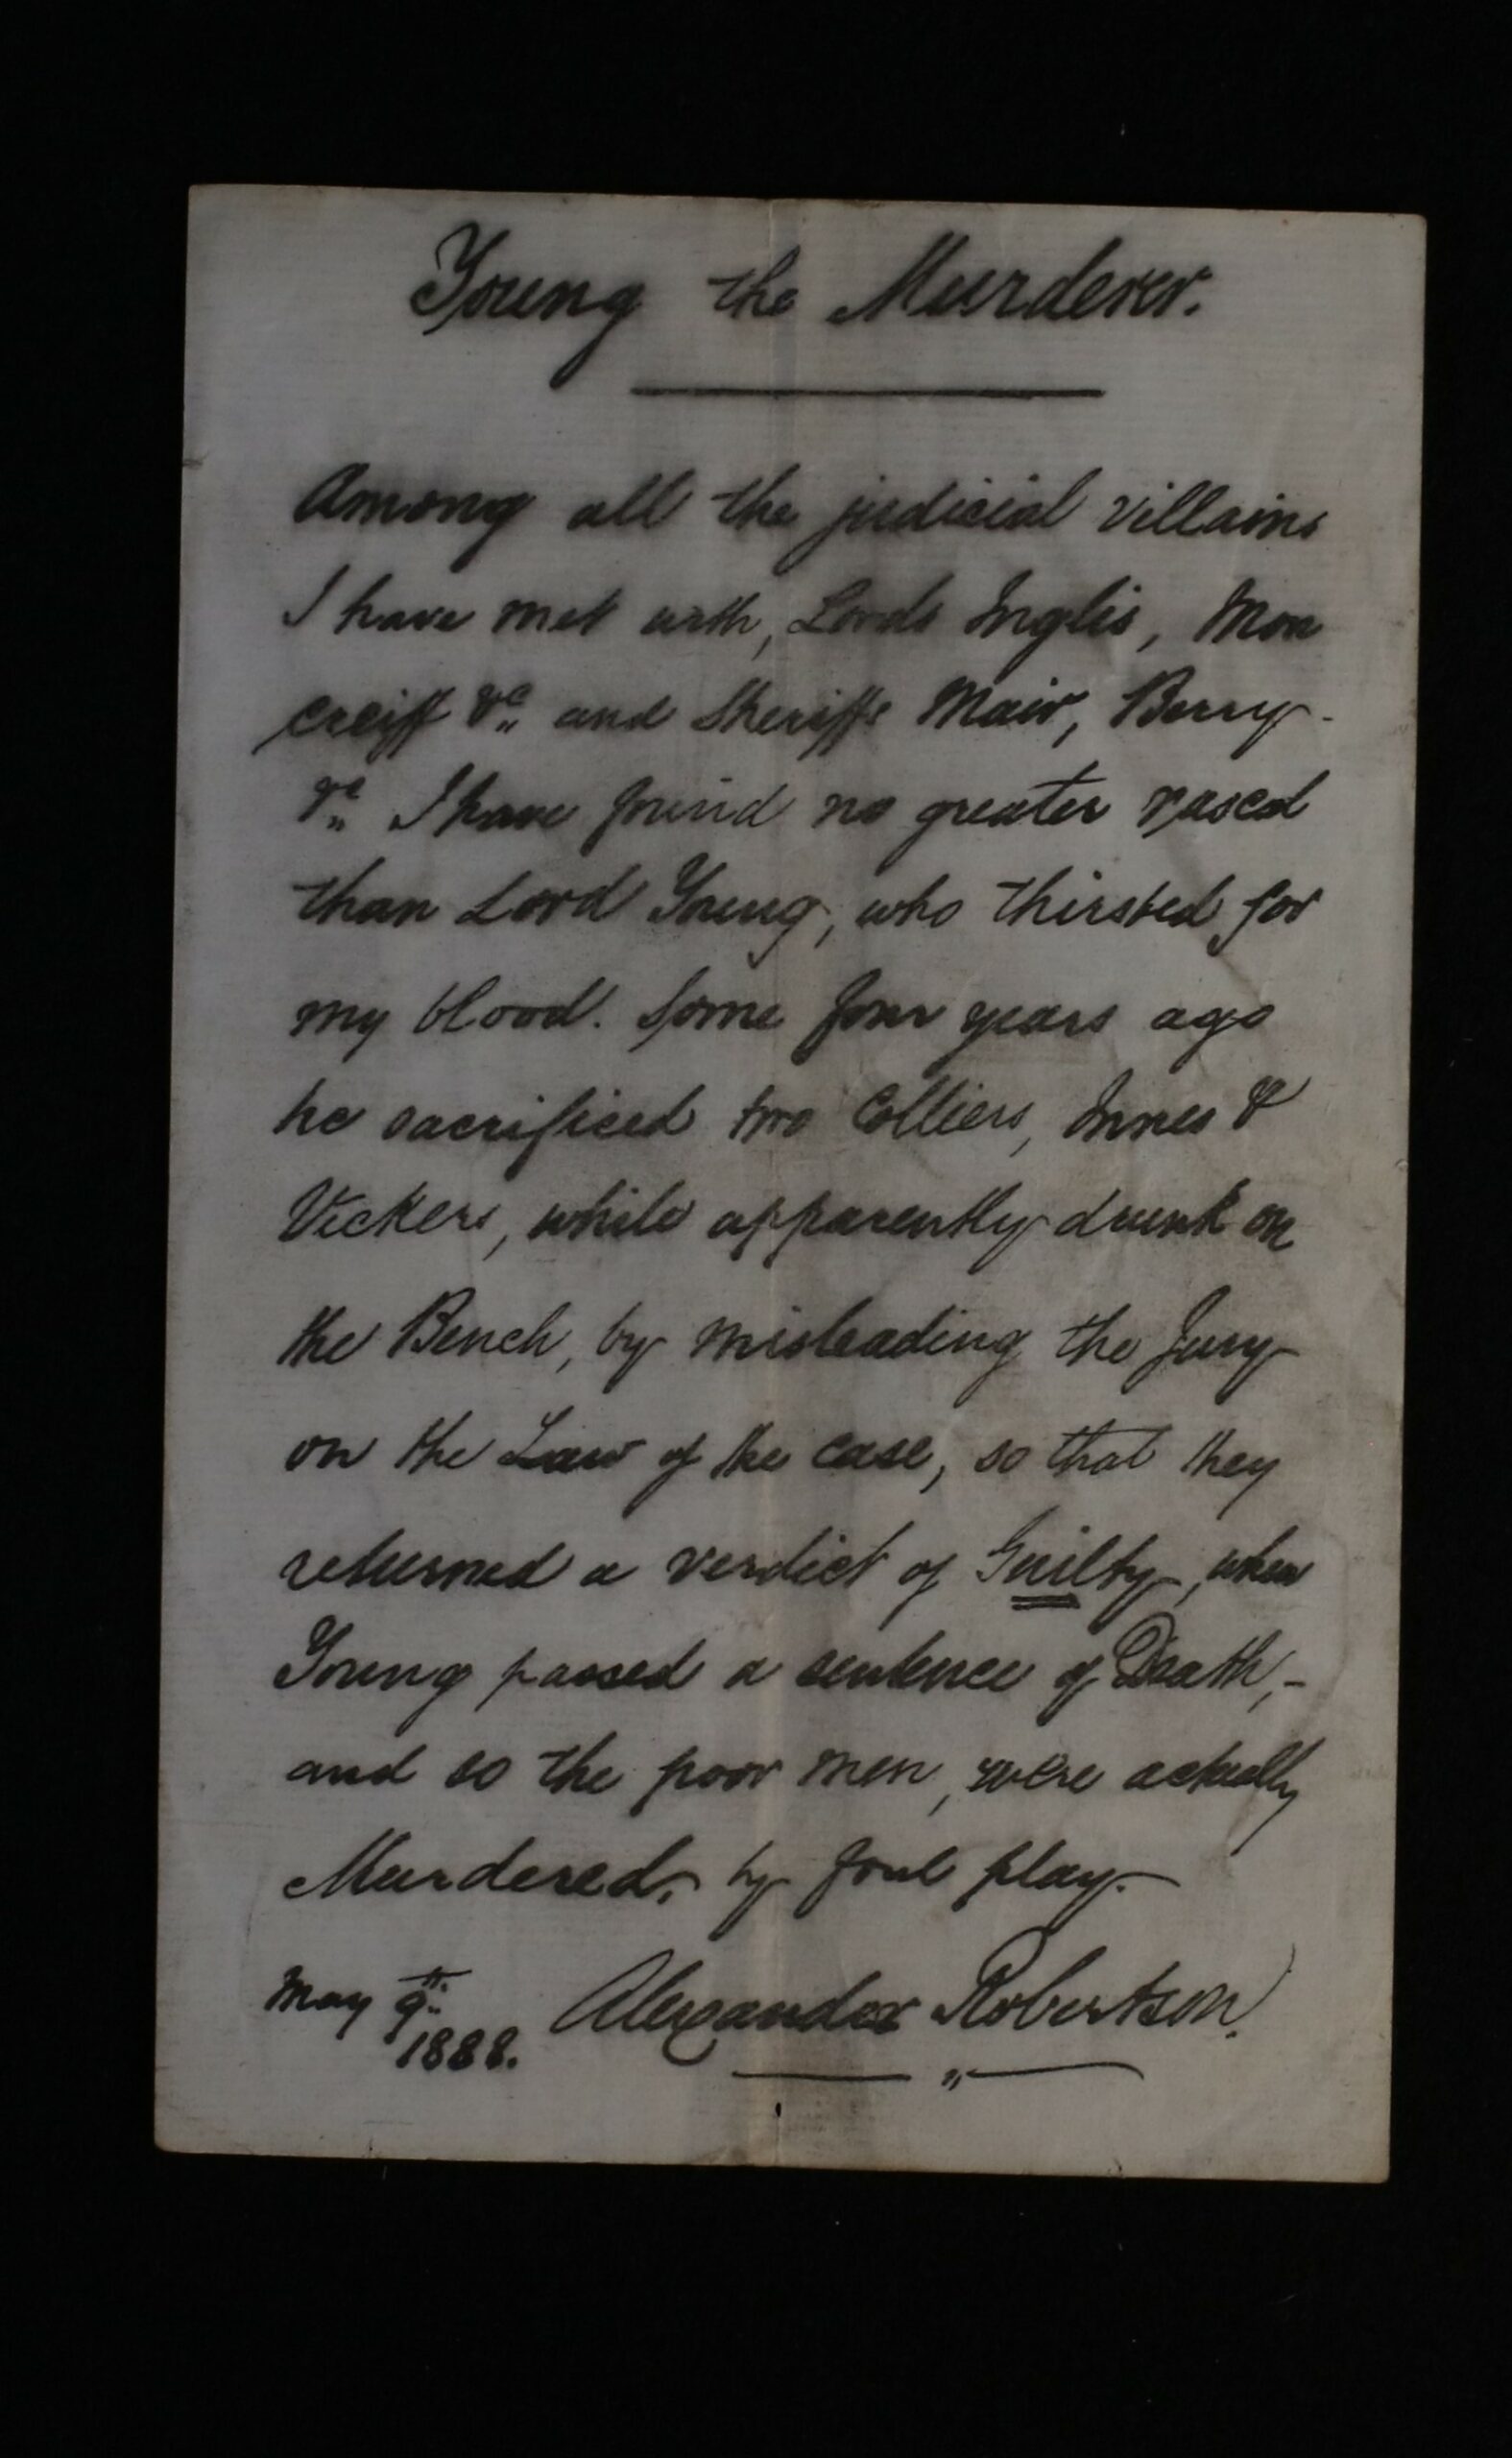 Young the Murderer.
Among all the judicial villains
I have met with, Lords Inglis, Mon
creiff &c. and Sheriffs Mair, Berry
&c. I have found no greater rascal
than Lord Young, who thirsted for
my blood. Some four years ago
he sacrificed two Colliers, Innes &
Vickers, while apparently drunk on
the Bench, by misleading the Jury
on the Law of the case, so that they
returned a verdict of Guilty, when
Young passed a sentence of Death,-
and so the poor men, were actually
Murdered, by foul play.
May 9th Alexander Robertson.
1888.